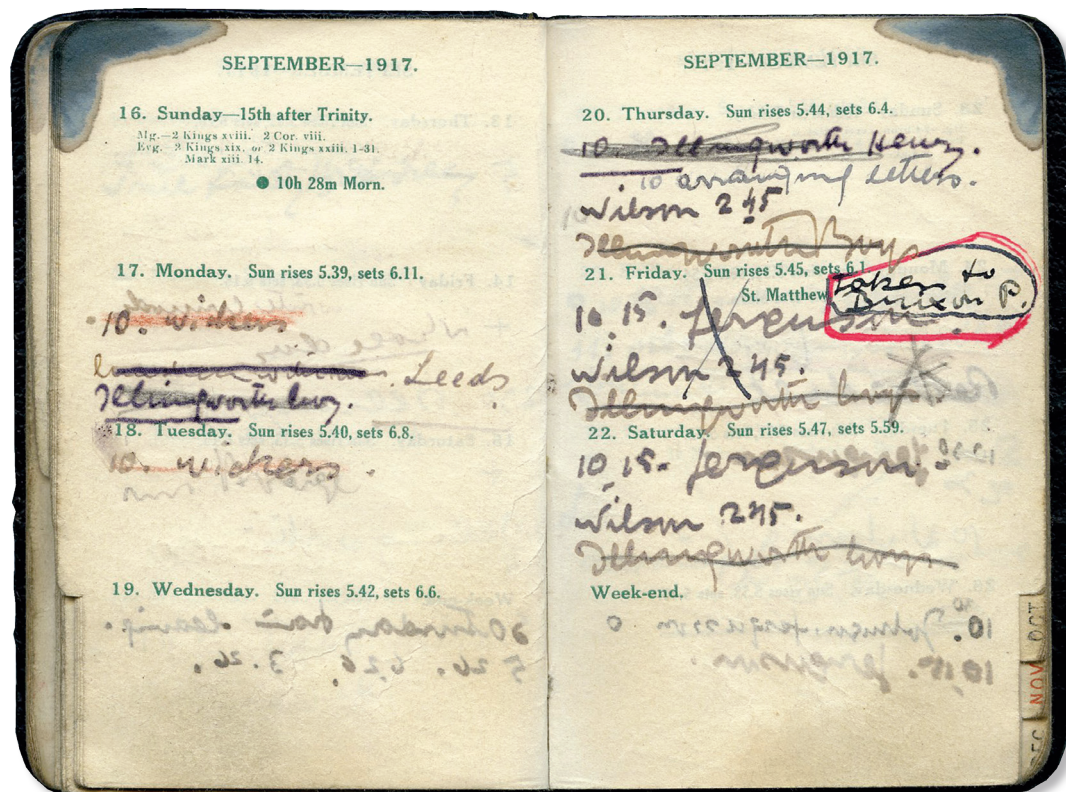 SEPTEMBER—1917.
16. Sunday—15th after Trinity.
Mg.—2 Kings xviii. 2 Cor. viii.
Evg. 2 Kings xix. or 2 Kings xxiii. 1-31.
Mark xiii. 14.
● 10h 28m Morn.
17. Monday. Sun rises 5.39, sets 6.11.
10. Wickers
Leeds
Illingworth boy.
18. Tuesday. Sun rises 5.40, sets 6.8.
10. Wickers.
19. Wednesday. Sun rises 5.42, sets 6.6.
SEPTEMBER—1917.
20. Thursday. Sun rises 5.44, sets 6.4.
10. Illingworth Henry.
10 arranging letters.
Wilson 2 45
Illingworth Boys
21. Friday. Sun rises 5.45, sets 6.1
St. Matthew
taken to
Brixton P.
10.15. Ferguson.
Wilson 2 45.
Illingworth boys
22. Saturday. Sun rises 5.47, sets 5.59.
10 15. Ferguson.
Wilson 2 45.
Illingworth boys
Week-end.
OCT
NOV
DEC